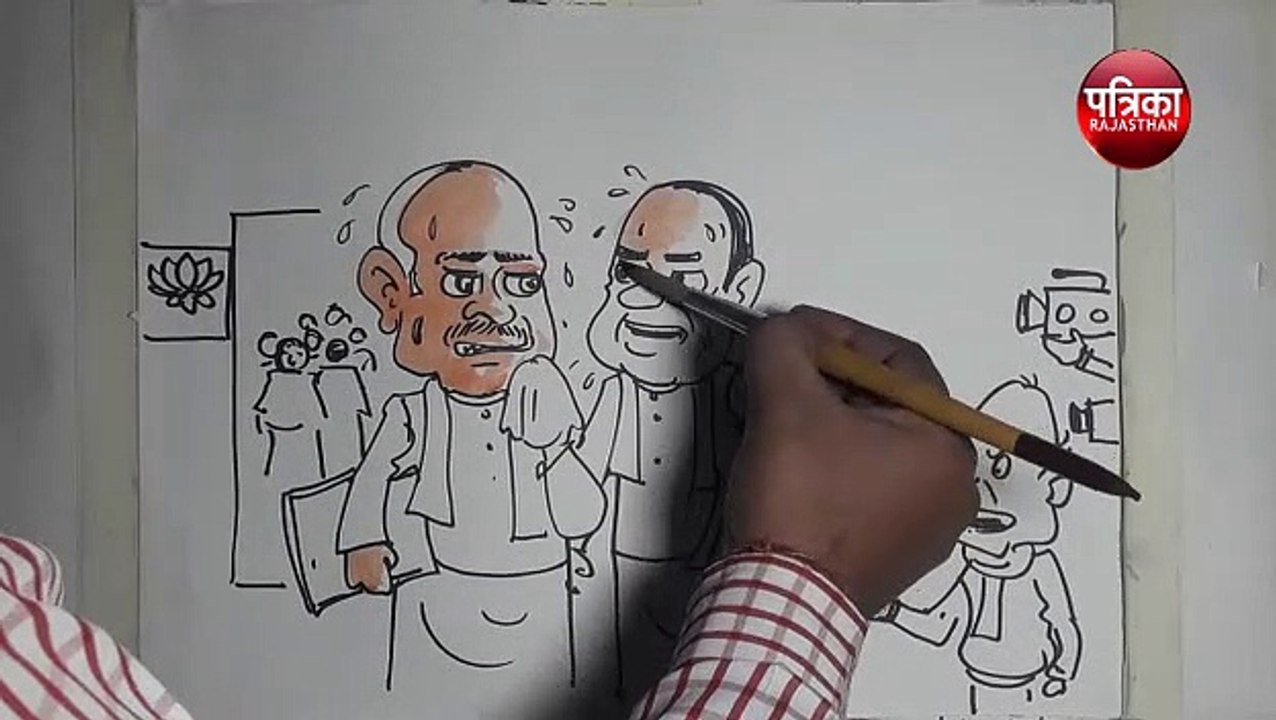 पत्रिका
RAJASTHAN